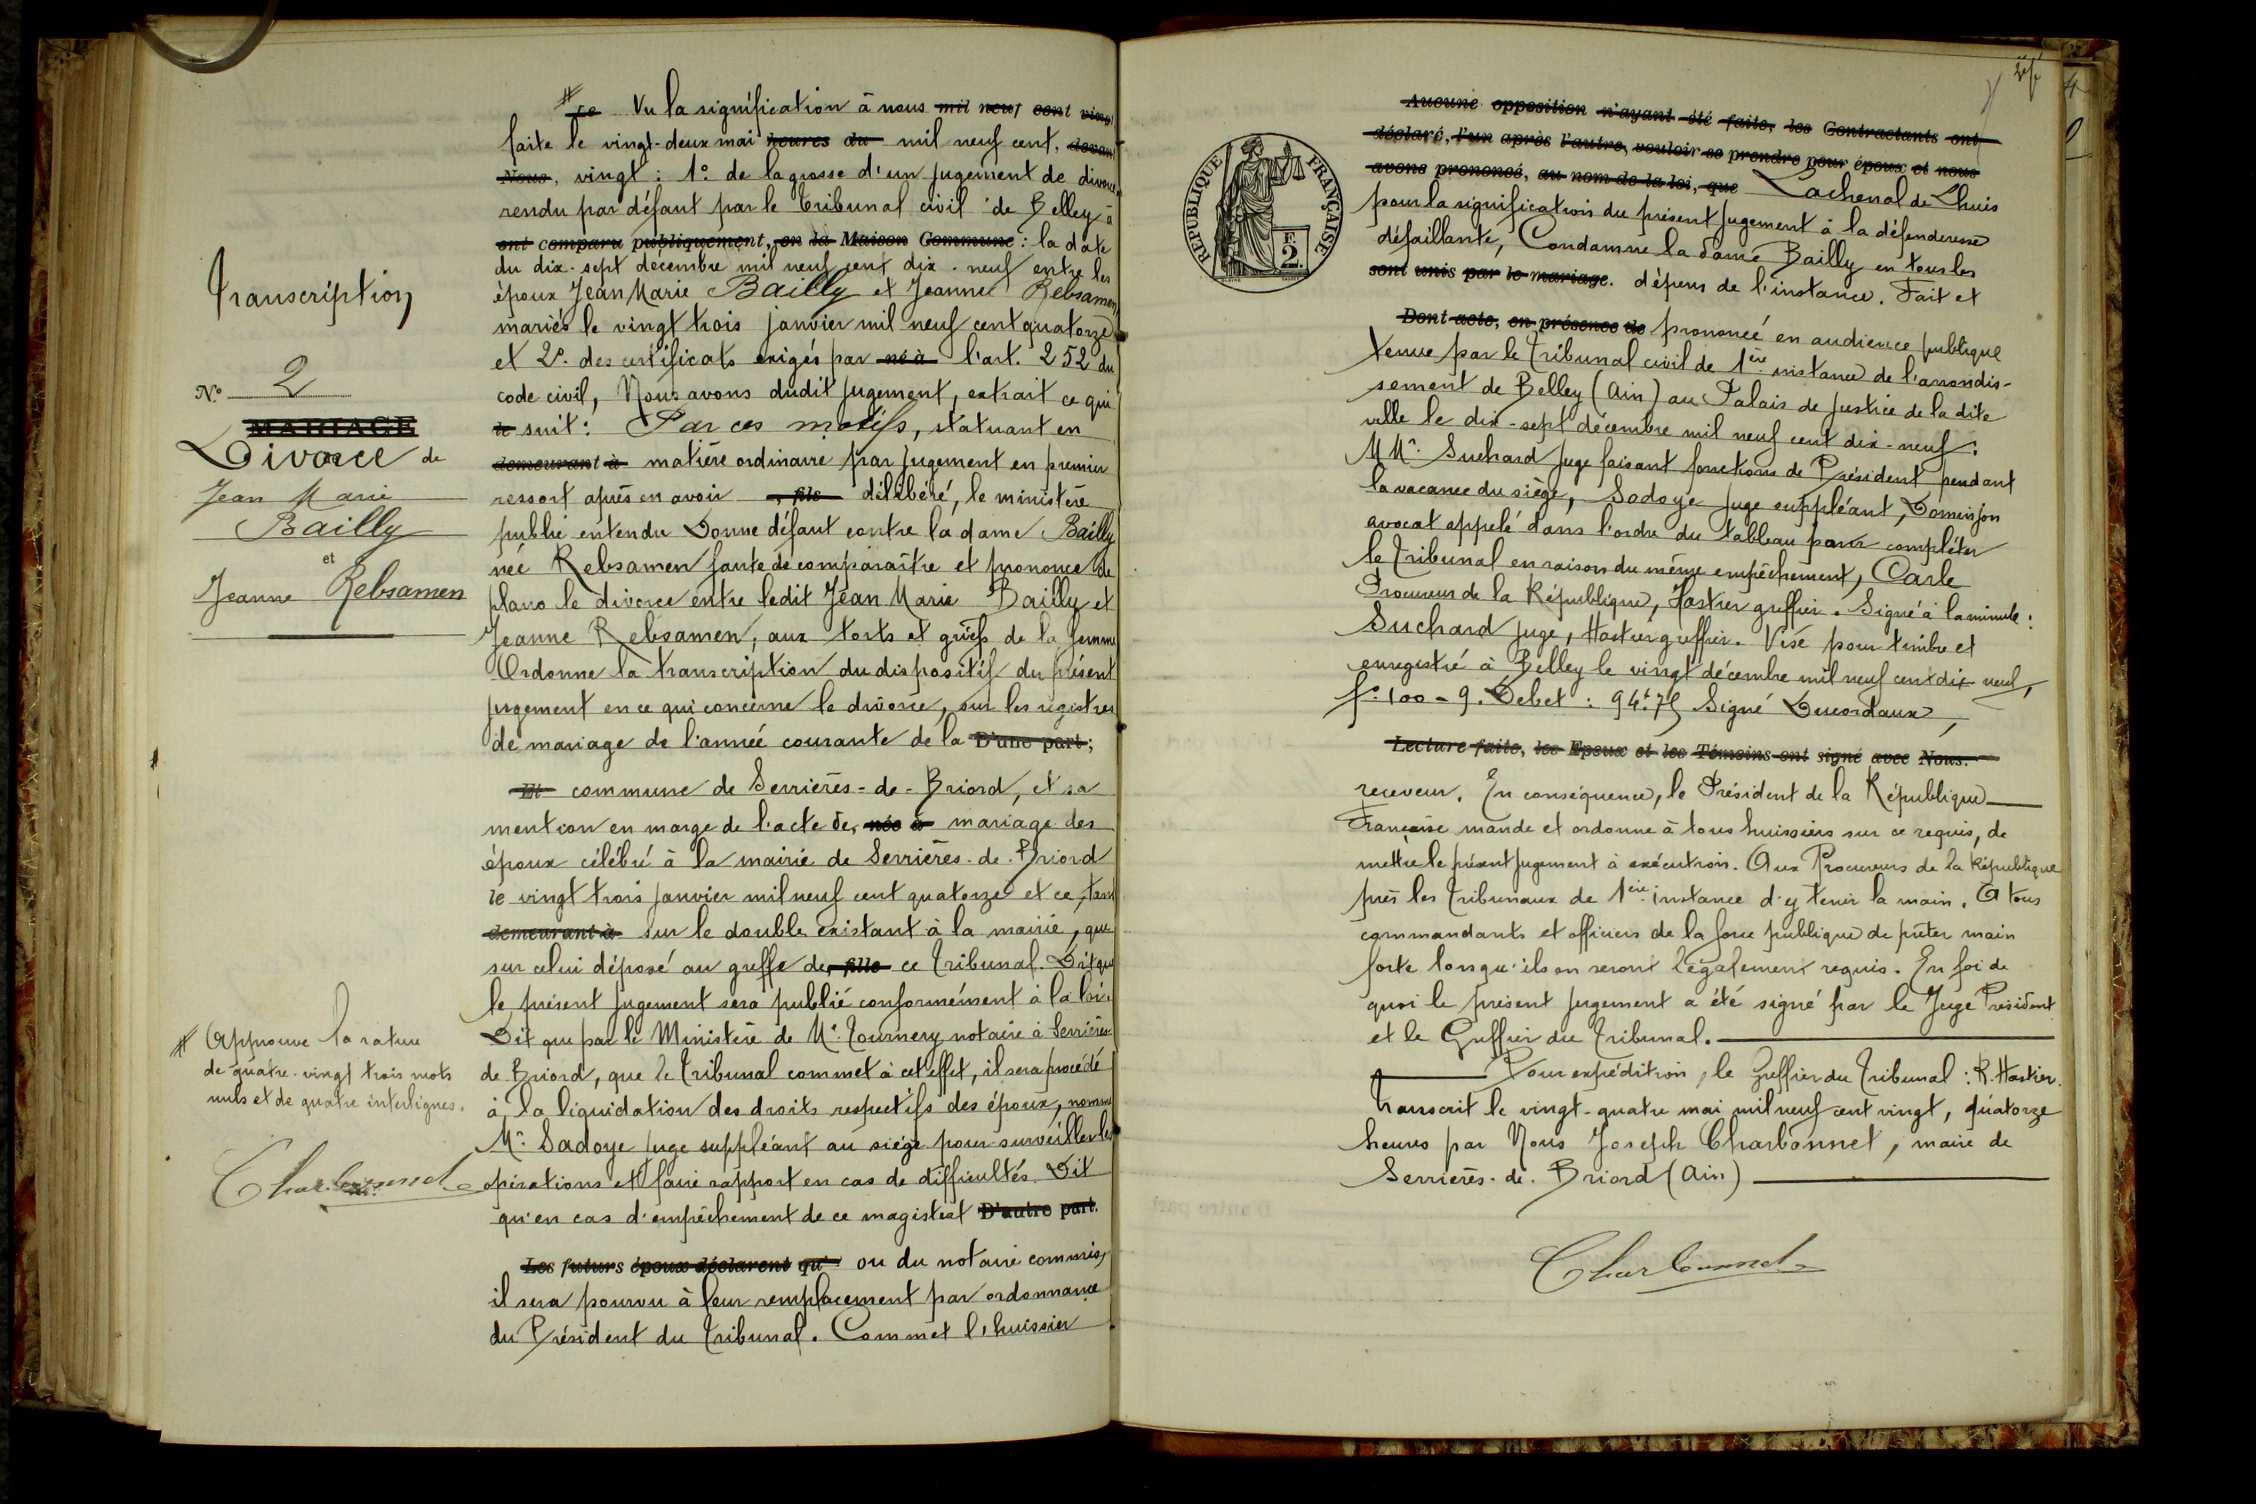 Transcription
N.º 2
MARIAGE
Divorce de
Jean Marie
Bailly
et
Jeanne Rebsamen
# Approuve la rature
de quatre-vingt trois mots
nuls et de quatre interlignes.
Charbonnet
# Le Vu la signification à nous mil neuf cent vingt
faite le vingt-deux mai heures du mil neuf cent, devant
Nous, vingt : 1º. de la grosse d'un jugement de divorce
rendu par défaut par le Tribunal civil de Belley à
ont comparu publiquement, en la Maison Commune : la date
du dix-sept décembre mil neuf cent dix-neuf entre les
époux Jean Marie Bailly et Jeanne Rebsamen,
mariés le vingt trois janvier mil neuf cent quatorze
et 2º. des certificats exigés par né à l'art. 252 du
code civil, Nous avons dudit jugement, extrait ce qui
le suit : Par ces motifs, statuant en
demeurant à matière ordinaire par jugement en premier
ressort après en avoir , fils délibéré, le ministère
public entendu Donne défaut contre la dame Bailly
née Rebsamen faute de comparaître et prononce de
plano le divorce entre ledit Jean Marie Bailly et
Jeanne Rebsamen, aux torts et griefs de la femme
Ordonne la transcription du dispositif du présent
jugement en ce qui concerne le divorce, sur les registres
de mariage de l'année courante de la D'une part ;
Et commune de Serrières-de-Briord, et sa
mention en marge de l'acte de, née à mariage des
époux célébré à la mairie de Serrières-de-Briord
le vingt trois janvier mil neuf cent quatorze et ce, tant
demeurant à sur le double existant à la mairie, que
sur celui déposé au greffe de, fille ce Tribunal. Dit que
le présent jugement sera publié conformément à la loi.
Dit que par le Ministère de Mᵉ. Tournery notaire à Serrières-
de-Briord, que le Tribunal commet à cet effet, il sera procédé
à la liquidation des droits respectifs des époux, nomme
Mʳ. Sadoye juge suppléant au siège pour surveiller les
opérations et faire rapport en cas de difficultés. Dit
qu'en cas d'empêchement de ce magistrat D'autre part.
Les futurs époux déclarent qu' ou du notaire commis,
il sera pourvu à leur remplacement par ordonnance
du Président du Tribunal. Commet l'huissier
RÉPUBLIQUE FRANÇAISE
F.
2.
Aucune opposition n'ayant été faite, les Contractants ont
déclaré, l'un après l'autre, vouloir se prendre pour époux et nous
avons prononcé, au nom de la loi, que Lachenal de Lhuis
pour la signification du présent jugement à la défenderesse
défaillante, Condamne la dame Bailly en tous les
sont unis par le mariage. dépens de l'instance. Fait et
Dont acte, en présence de prononcé en audience publique
tenue par le Tribunal civil de 1ère instance de l'arrondis-
sement de Belley (Ain) au Palais de Justice de la dite
ville le dix-sept décembre mil neuf cent dix-neuf :
MMʳˢ. Suchard juge faisant fonctions de Président pendant
la vacance du siège, Sadoye juge suppléant, Domenjon
avocat appelé dans l'ordre du tableau pour compléter
le Tribunal en raison du même empêchement, Carle
Procureur de la République, Hastier greffier. Signé à la minute :
Suchard juge, Hastier greffier. Visé pour timbre et
enregistré à Belley le vingt décembre mil neuf cent dix-neuf,
fº. 100 - 9. Debet : 94ᶠ.75 Signé Ducordaux,
Lecture faite, les Epoux et les Témoins ont signé avec Nous.
receveur. En conséquence, le Président de la République
Française mande et ordonne à tous huissiers sur ce requis, de
mettre le présent jugement à exécution. Aux Procureurs de la République
près les Tribunaux de 1ère instance d'y tenir la main. A tous
commandants et officiers de la force publique de prêter main
forte lorsqu'ils en seront légalement requis. En foi de
quoi le présent jugement a été signé par le Juge Président
et le Greffier du Tribunal.
Pour expédition, le Greffier du Tribunal : R. Hastier.
Transcrit le vingt-quatre mai mil neuf cent vingt, quatorze
heures par Nous Joseph Charbonnet, maire de
Serrières-de-Briord (Ain)
Charbonnet